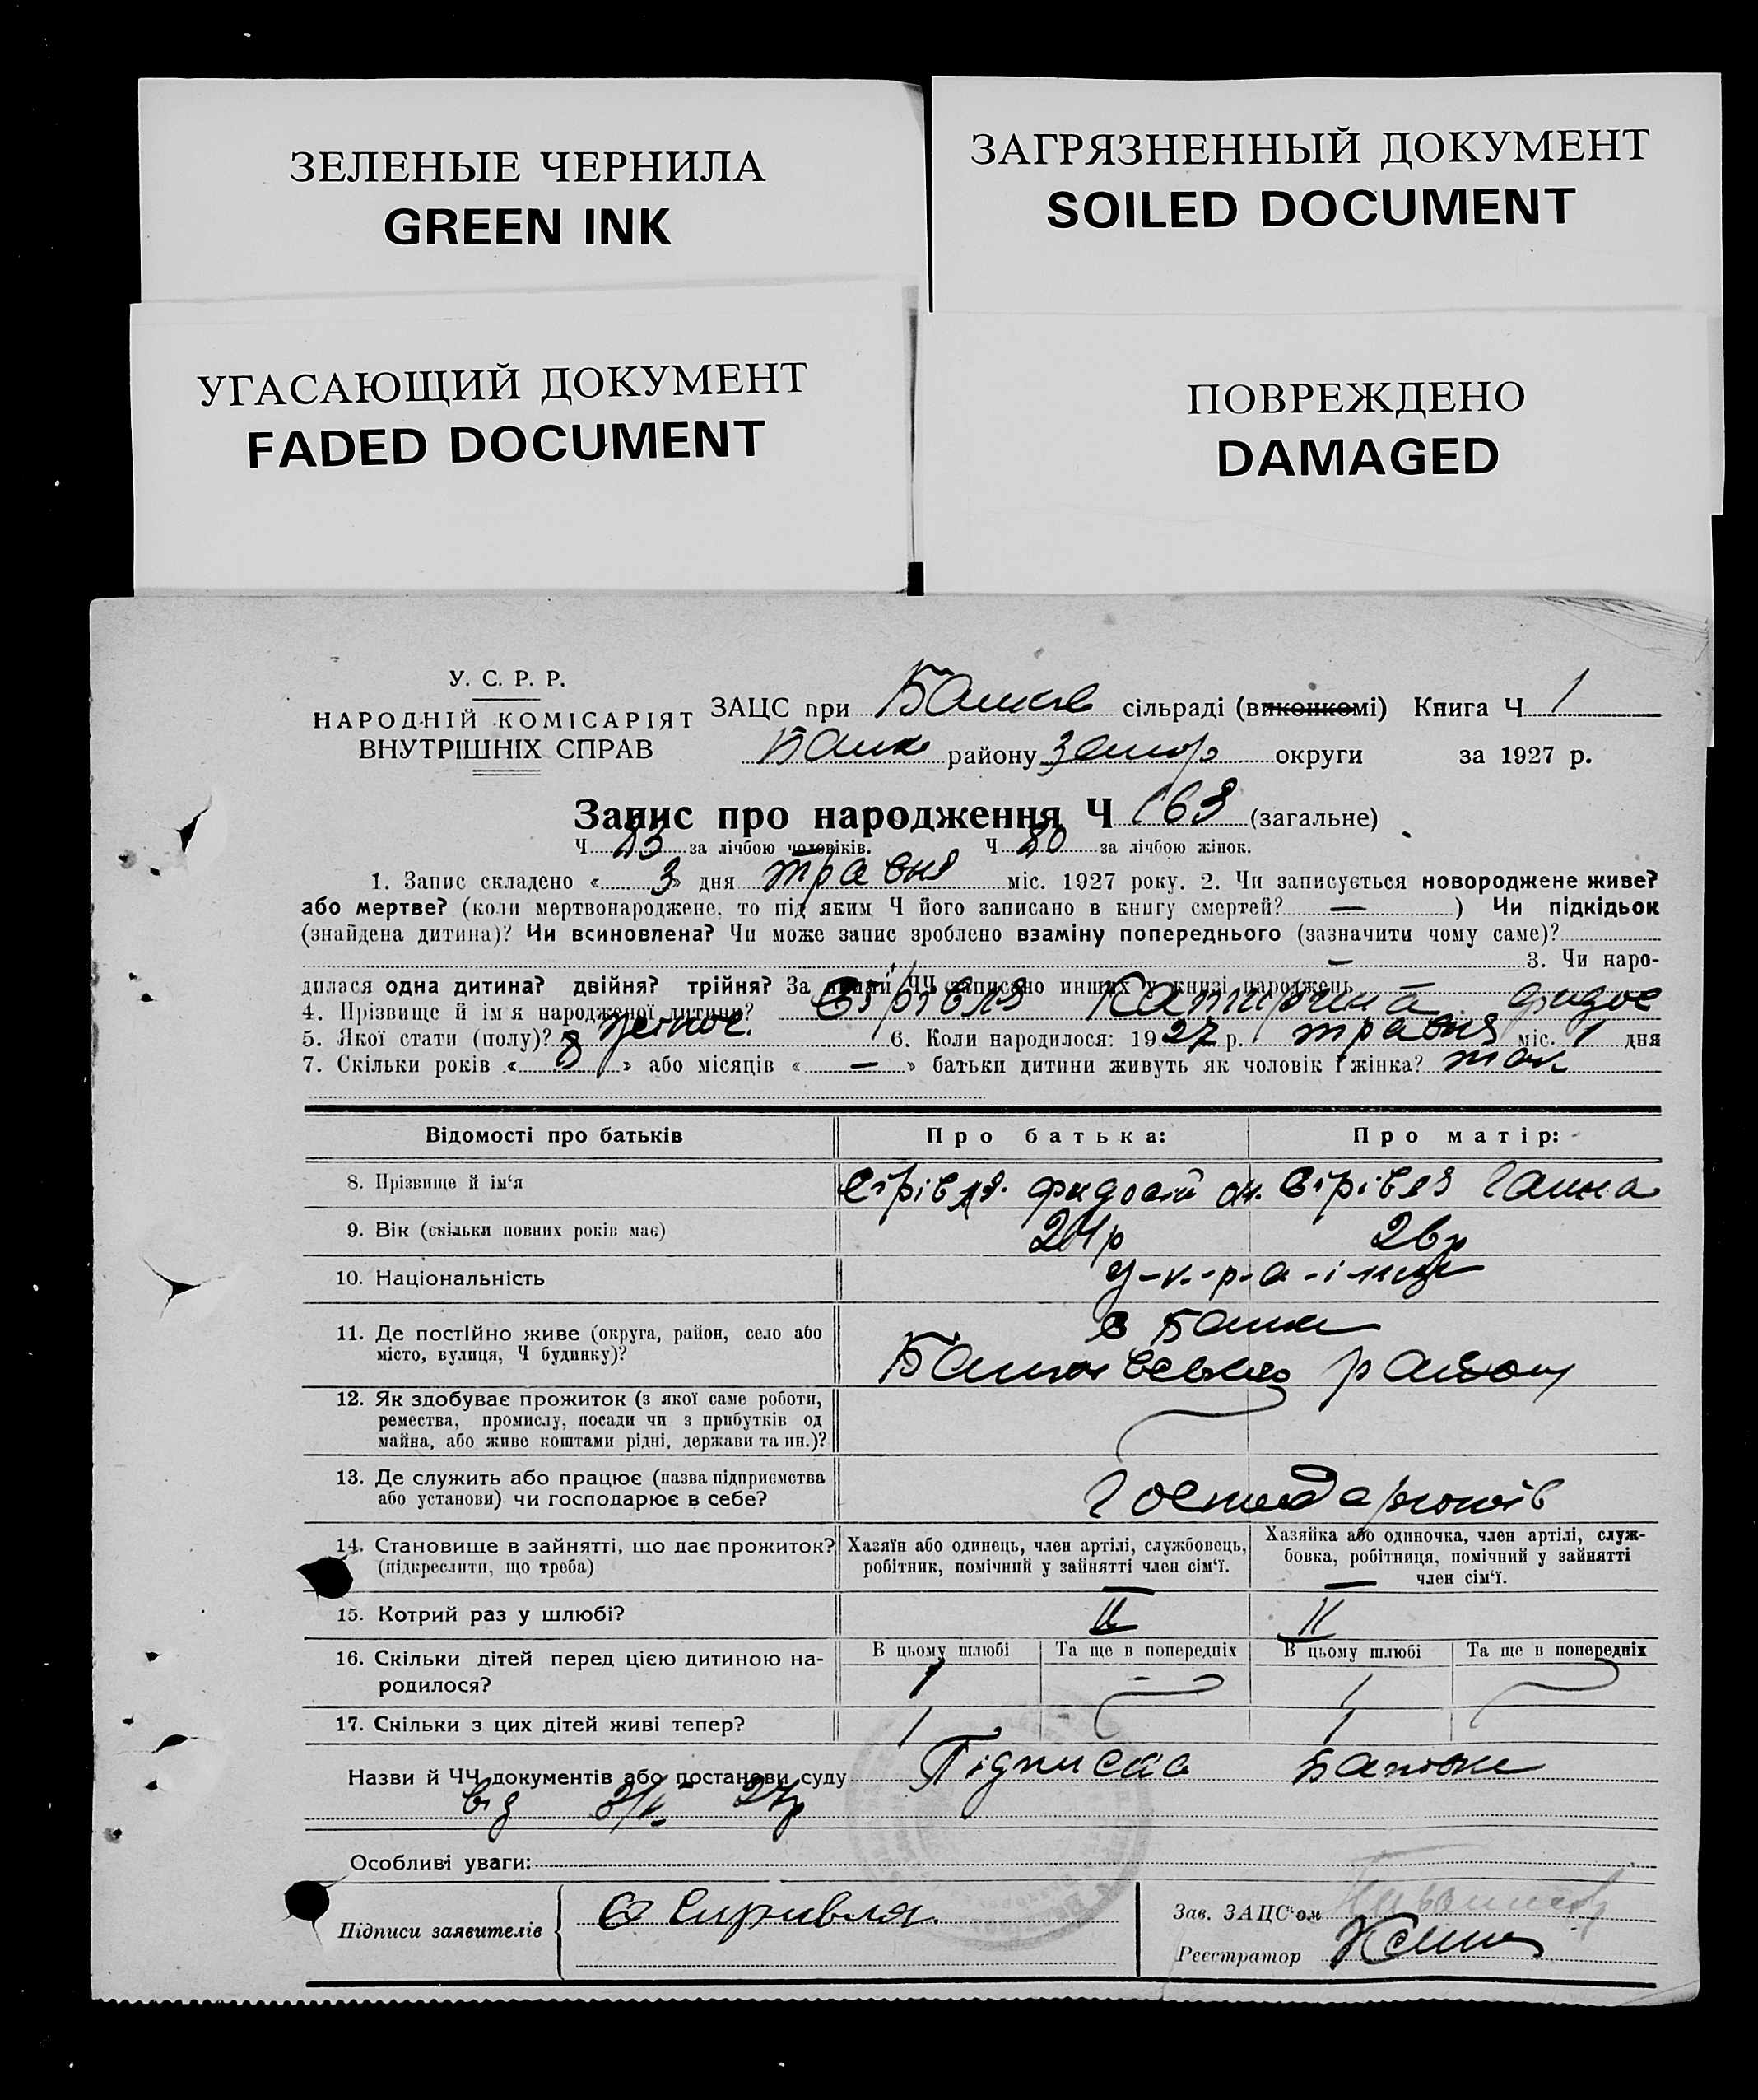 ЗЕЛЕНЫЕ ЧЕРНИЛА
GREEN INK
ЗАГРЯЗНЕННЫЙ ДОКУМЕНТ
SOILED DOCUMENT
УГАСАЮЩИЙ ДОКУМЕНТ
FADED DOCUMENT
ПОВРЕЖДЕНО
DAMAGED
У. С. Р. Р.
НАРОДНІЙ КОМІСАРІЯТ
ВНУТРІШНІХ СПРАВ
ЗАЦС при сільраді (виконкомі) Книга Ч 1
району Запор округи за 1927 р.
Запис про народження Ч 163 (загальне)
Ч 83 за лічбою чоловіків. Ч 80 за лічбою жінок.
1. Запис складено « 3 » дня травня міс. 1927 року. 2. Чи записується новороджене живе?
або мертве? (коли мертвонароджене, то під яким Ч його записано в книгу смертей? — ) Чи підкідьок
(знайдена дитина)? Чи всиновлена? Чи може запис зроблено взаміну попереднього (зазначити чому саме)?
— 3. Чи наро-
дилася одна дитина? двійня? трійня? За якими ЧЧ записано инших у книзі народжень
4. Прізвище й ім'я народженої дитини?
5. Якої стати (полу)? 6. Коли народилося: 1927 р. травня міс. 1 дня
7. Скільки років « » або місяців « — » батьки дитини живуть як чоловік і жінка? так
Відомості про батьків
Про батька:
Про матір:
8. Прізвище й ім‘я
Ганна
9. Вік (скільки повних років має)
26р
10. Національність
у-к-р-а-їнці
11. Де постійно живе (округа, район, село або
місто, вулиця, Ч будинку)?
району
12. Як здобуває прожиток (з якої саме роботи,
ремества, промислу, посади чи з прибутків од
майна, або живе коштами рідні, держави та ин.)?
13. Де служить або працює (назва підприємства
або установи) чи господарює в себе?
14. Становище в зайнятті, що дає прожиток?
(підкреслити, що треба)
Хазяїн або одинець, член артілі, службовець,
робітник, помічний у зайнятті член сім‘ї.
Хазяйка або одиночка, член артілі, служ-
бовка, робітниця, помічний у зайнятті
член сім‘ї.
15. Котрий раз у шлюбі?
II II
16. Скільки дітей перед цією дитиною на-
родилося?
В цьому шлюбі Та ще в попередніх В цьому шлюбі Та ще в попередніх
1 — 1
17. Скільки з цих дітей живі тепер?
1 1
Назви й ЧЧ документів або постанови суду Підписка
від 27р
Особливі уваги:
Підписи заявителів
Зав. ЗАЦС‘ом
Реєстратор